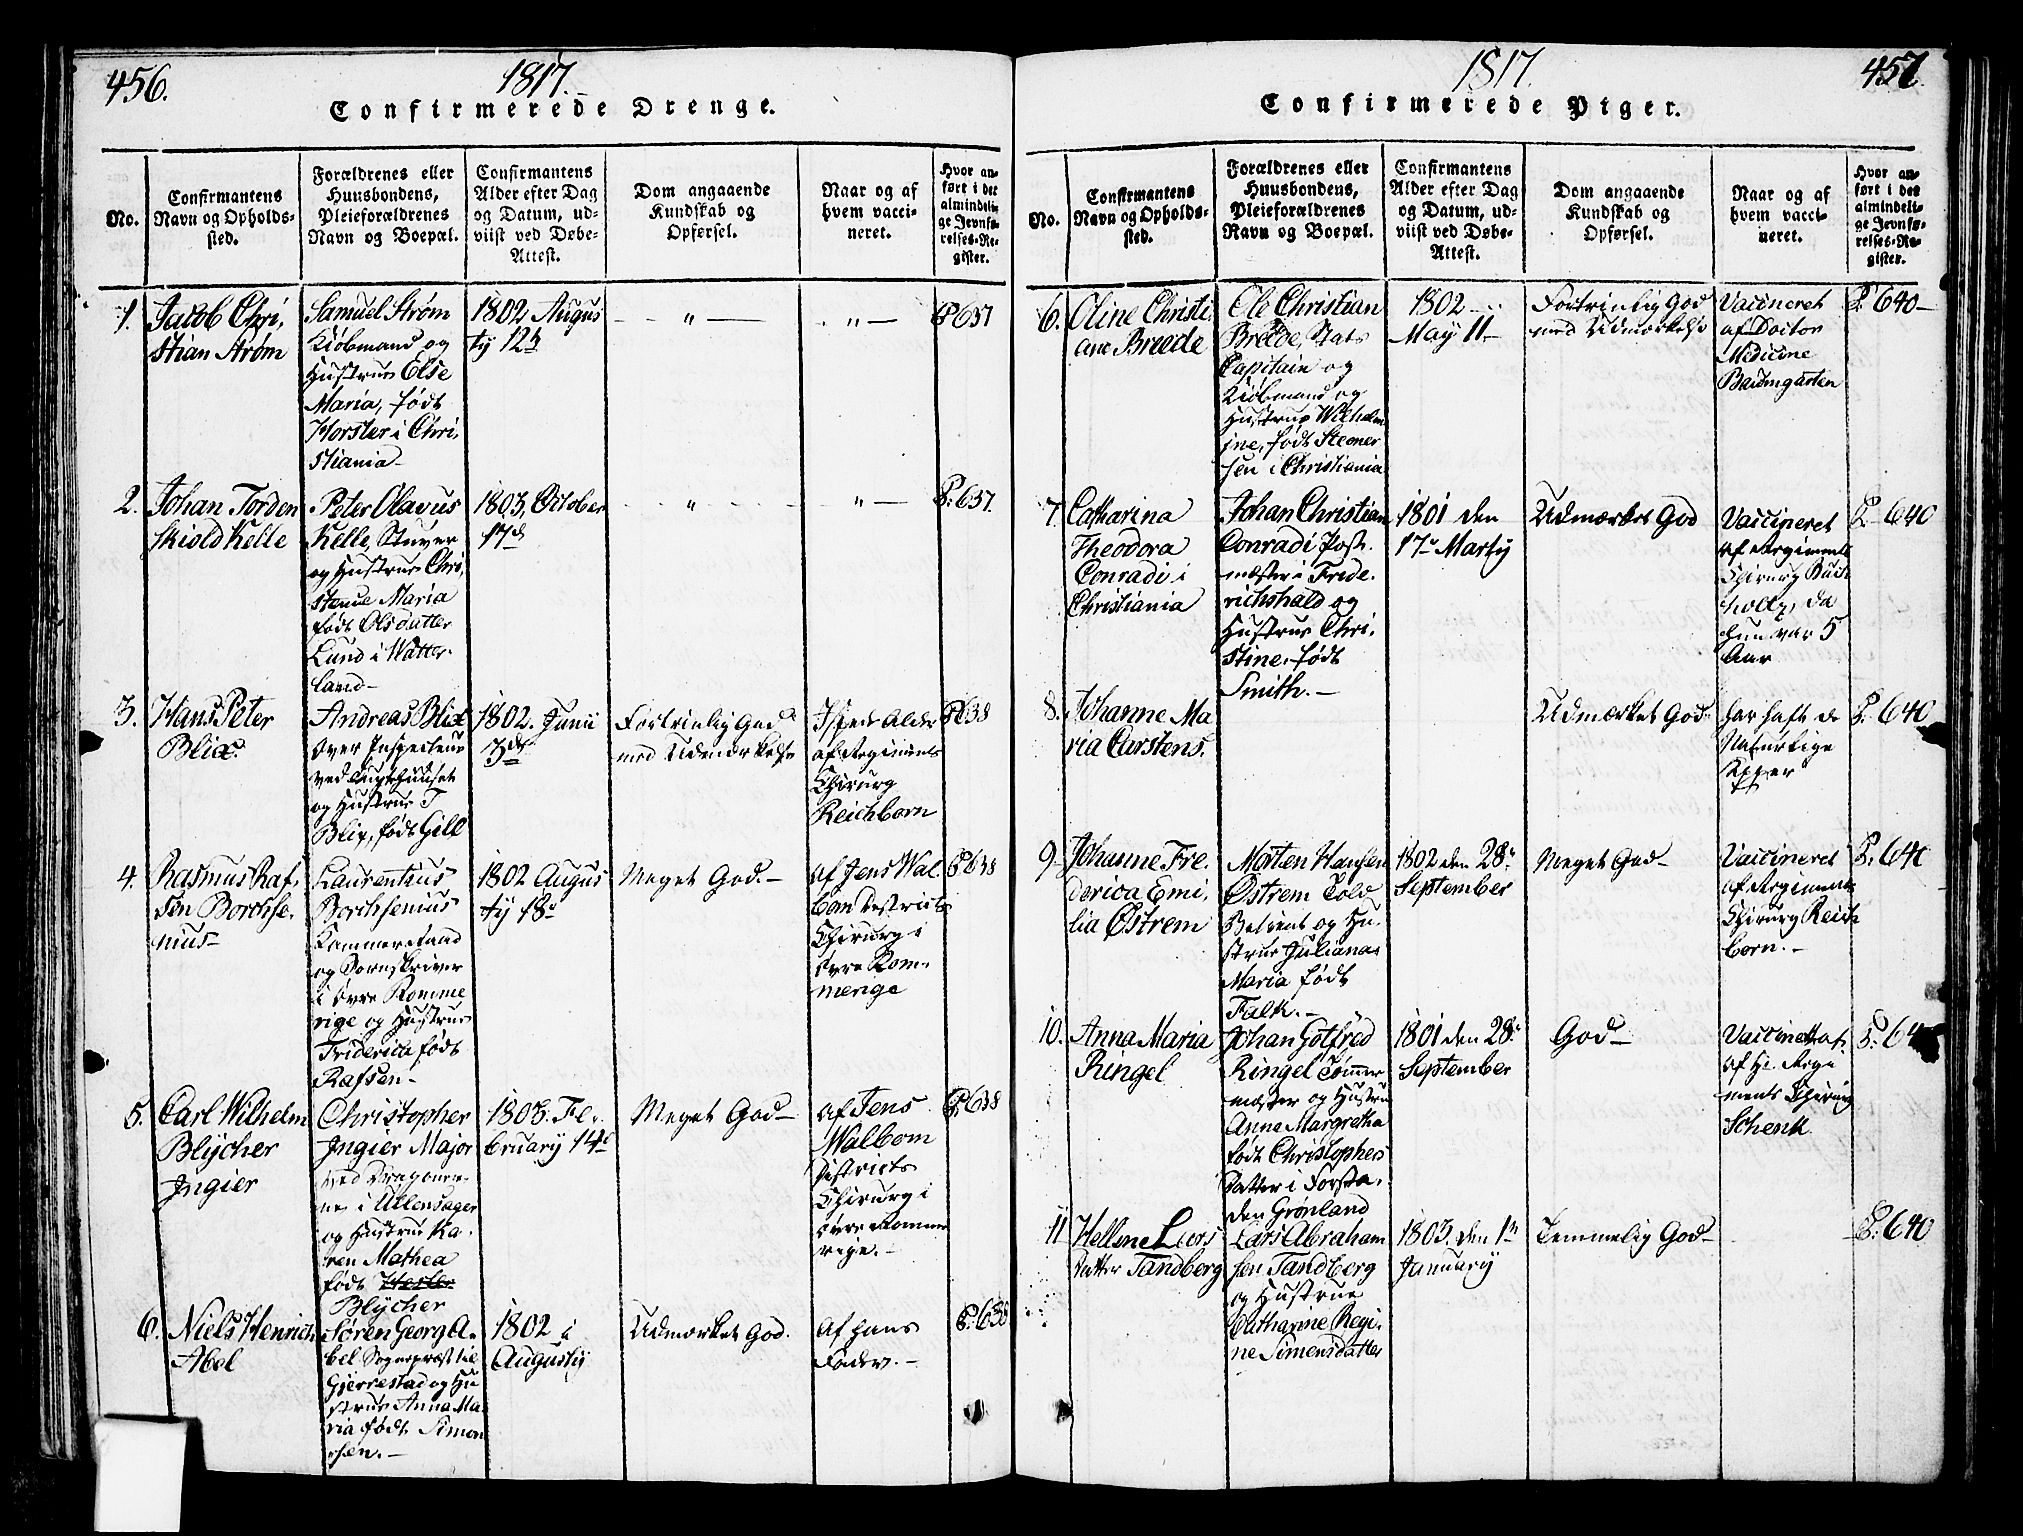 456.
1817.
Confirmerede Drenge.
No.
Confirmantens
Navn og Opholds-
sted.
Forældrenes eller
Huusbondens,
Pleieforældrenes
Navn og Boepæl.
Confirmantens
Alder efter Dag
og Datum, ud-
viist ved Døbe-
Attest.
Dom angaaende
Kundskab og
Opførsel.
Naar og af
hvem vacci-
neret.
Hvor an-
ført i det
almindeli-
ge Jevnfø-
relses-Re-
gister.
1.
Jacob Chri,
stian Strøm
Samuel Strøm
Kiøbmand og
Hustrue Else
Maria, født
Horster i Chri,
stiania
1802 Augus
ty 12th
"
"
P 637
2.
Johan Torden
skiold Kelle
Peter Olavus
Kelle, Stuver
og Hustrue Chri,
stence Maria
født Olsdatter
Lund i Watter-
land
1803, October
17d
"
"
P: 637.
3.
Hans Peter
Blix.
Andreas Blix
Over Inspecteur
ved Tugthuuset
og Hustrue T
Blix, født Gill
1802. Junii
3de
Fortrinlig God
med Udmærkelse
af Regiments
Chirurg
Reichborn
P 638
4.
Rasmus Raf,
sen Borchse,
nius
Laurentius
Borchsenius
Kammerraad
og Sorenskriver
i Øvre Romme
rige og Hustrue
Friderica født
Rafsen
1802 Augus
ty 18
Meget God.
af Jens Wal,
bom Districts
Chirurg i
Øvre Rom-
merige
P 638
5.
Carl Wilhelm
Blÿcher
Jngier
Christopher
Jngier Major
ved Dragoner-
ne i Ullensager
og Hustrue Ka,
ren Mathea
født Hesler
Blÿcher
1803. Fe,
bruary 14
Meget God
af Jens
Walbom
Districts
Chirurg i
Øvre Romme
rige.
P. 638
6.
Niels Henrich
Abel
Søren Georg A,
bel Sognepræst til
Gjerrestad og Hu
strue Anna Ma,
ria født Simon
sen.
1802 i
Augusty
Udmærket God.
Af hans
Fader.
P. 638
1817.
457.
Confirmerede Piger.
No.
Confirmantens
Navn og Opholds-
sted.
Forældrenes eller
Huusbondens,
Pleieforældrenes
Navn og Boepæl.
Confirmantens
Alder efter Dag
og Datum, ud-
viist ved Døbe-
Attest.
Dom angaaende
Kundskab og
Opførsel.
Naar og af
hvem vacci-
neret.
Hvor an-
ført i det
almindeli-
ge Jevnfø-
relses-Re-
gister.
6.
Oline Christi
ane Breede
Ole Christian
Breede, Stads
Capitain og
Kiøbmand og
Hustrue Wilhelm
ine, født Steener
sen i Christiania
1802
May 11
Fortrinlig God
med Udmærkelse
Vaccineret
af Doctor
Medicine
Baumgarten
P. 640
7
Catharina
Theodora
Conradi i
Christiania
Johan Christian
Conradi Post-
mæster i Frede,
richshald og
Hustrue Chri,
stine, født
Smith.
1801 den
17 Marty
Udmærket God
Vaccineret
af Regiments
Chirurg Buch
holtz, da
hun var 5
Aar
P. 640
8.
Johanne Ma
ria Carstens.
Udmærket God
har haft de
Naturlige
Kopper
P. 640
9
Johanne Fre,
derica Emi,
lia Østrem
Morten Hansen
Østrem Told
Betient og Hu-
strue Juliana
Maria født
Falk.
1802 den 28
September
Meget God
Vaccineret
af Regiments
Chirurg Reich
born.
P. 640
10.
Anna Maria
Ringel
Johan Gotfred
Ringel Tømmer
mæster og Hustrue
Anne Margretha
født Christophers
datter i Forsta,
den Grønland
1801 den 28
September
God
af Hr. Regi
ments Chirurg
Schenk
P. 64
11
Hellene Lars
datter Tandberg
Lars Abraham
sen Tandberg
og Hustrue
Catharine Regi,
ne Simensdatter
1803. den 1
January
Temmelig God
P. 640